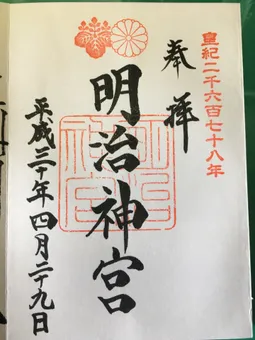 皇紀二千六百七十八年
奉拝
明治神宮
平成三十年四月二十九日
明治神宮